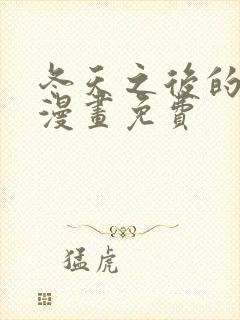 冬天之後的
漫畫免費
猛虎